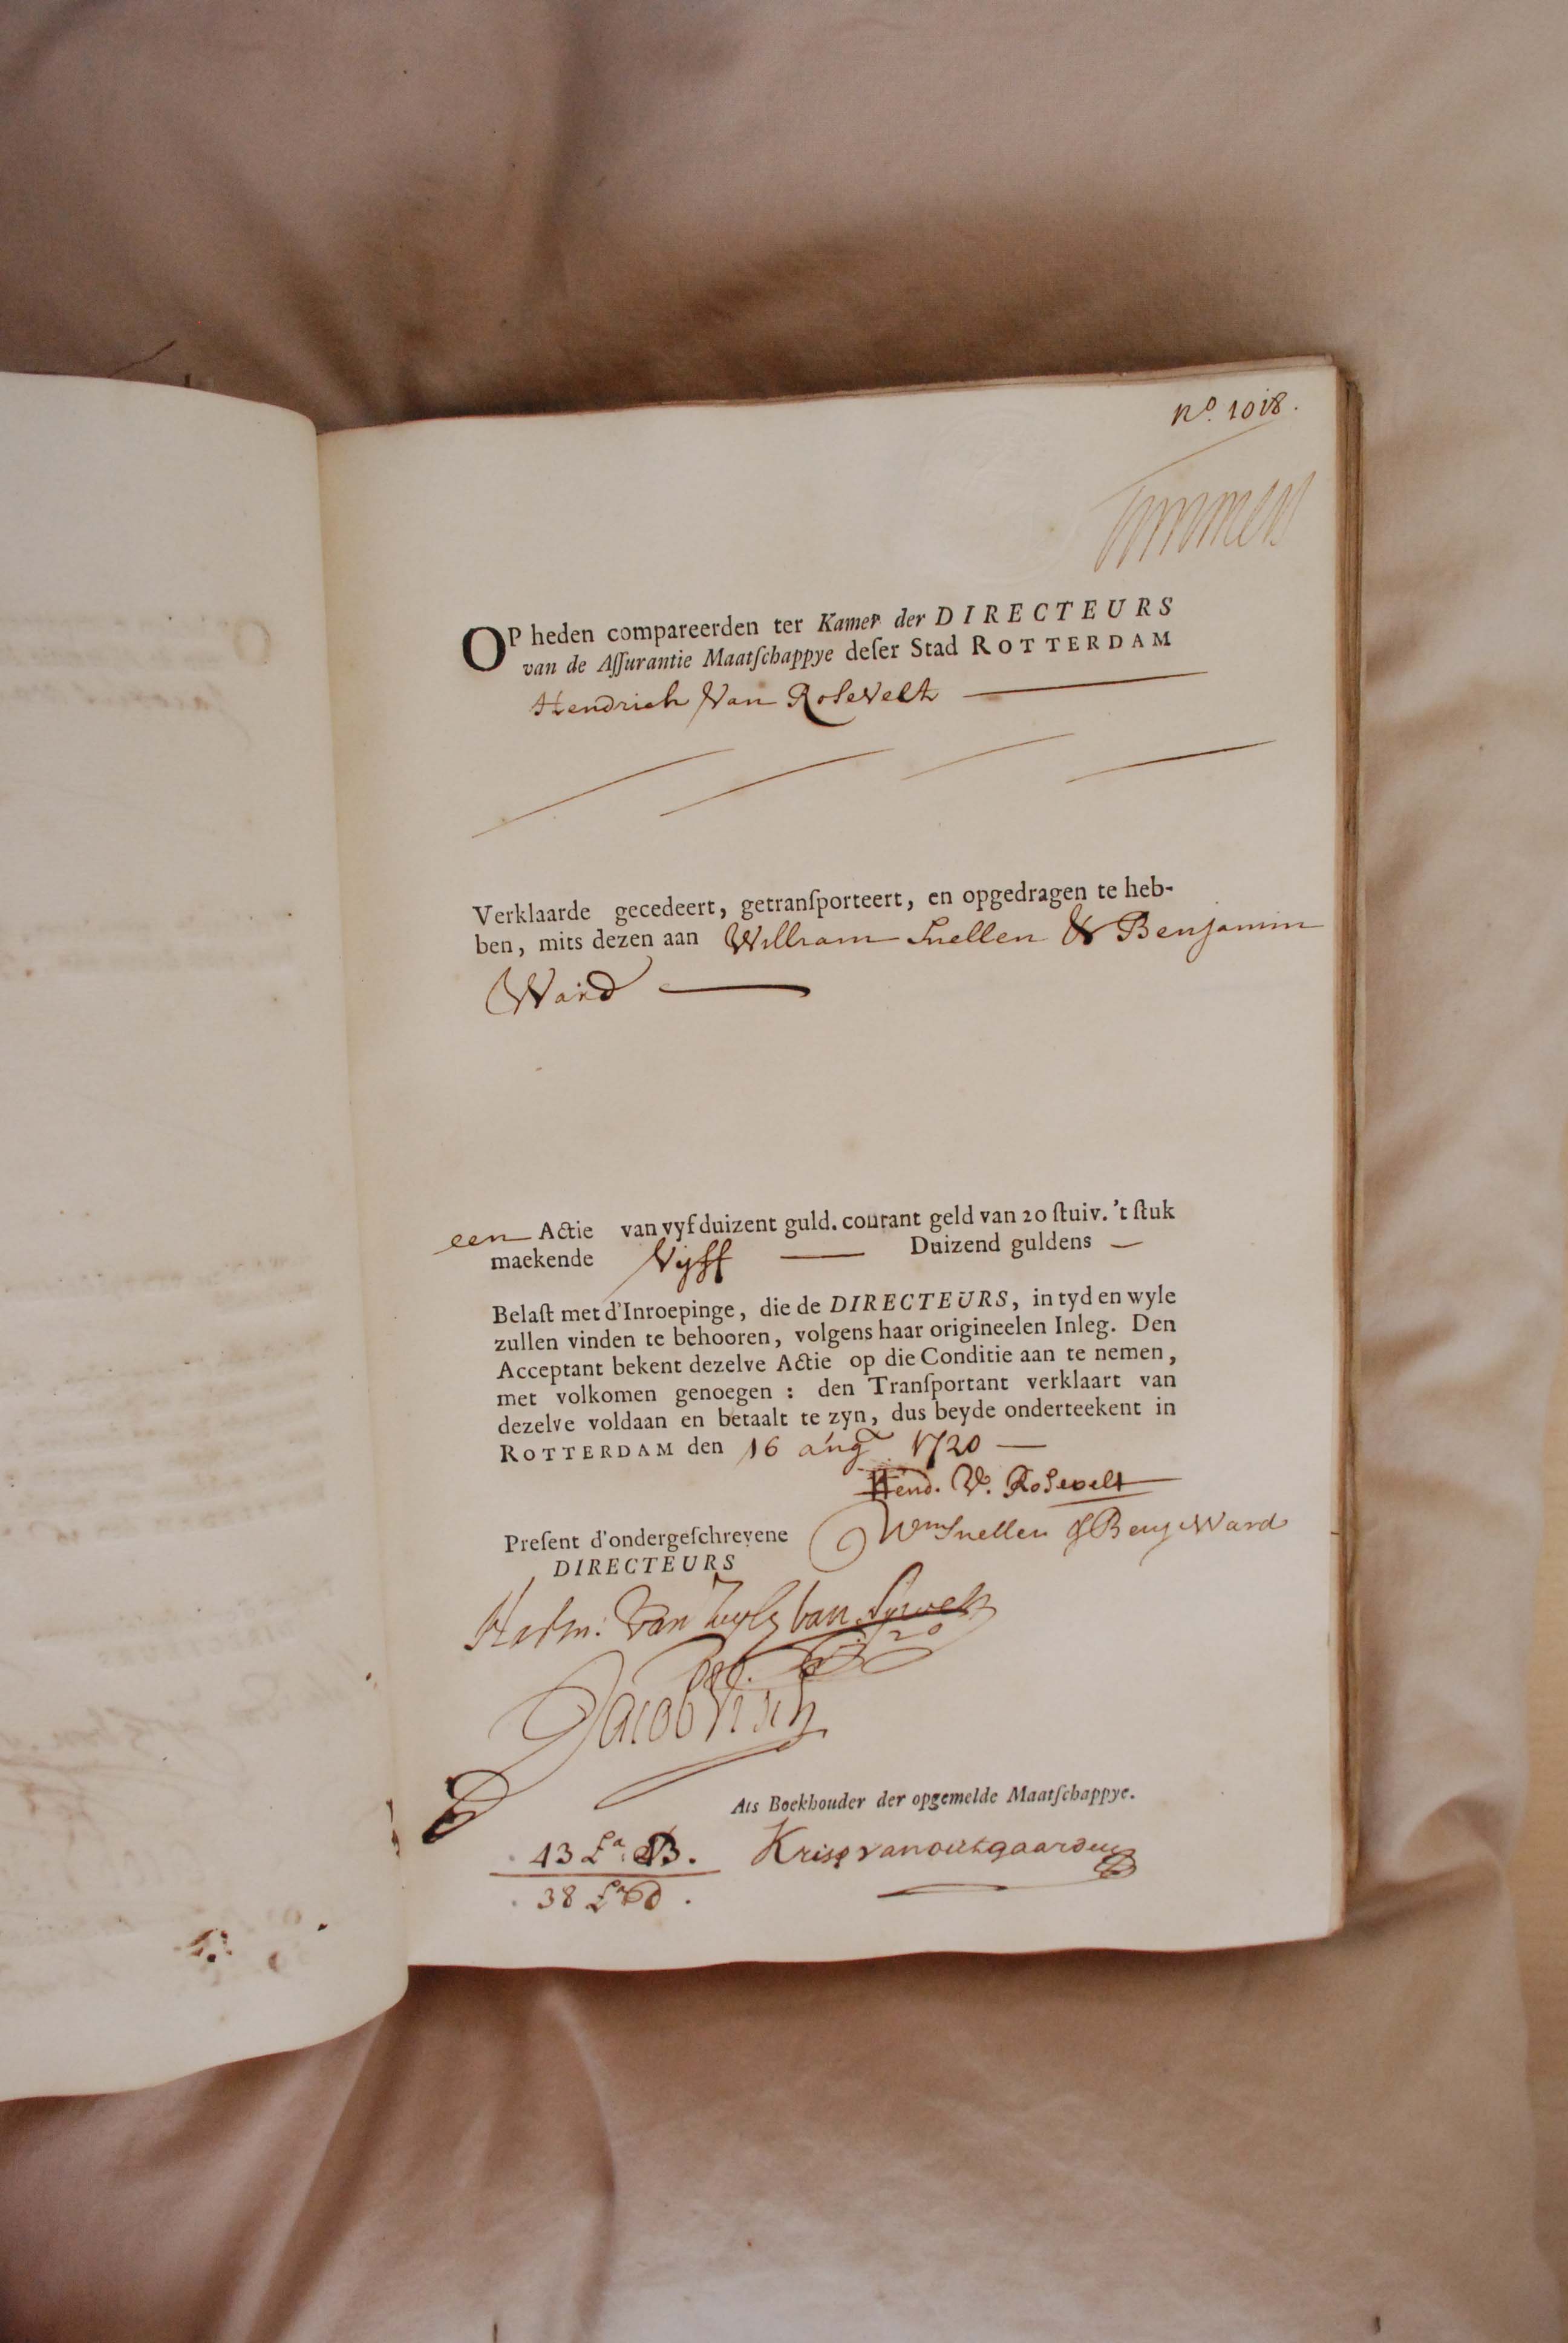 No. 1018.
Op heden compareerden ter Kamer der DIRECTEURS
van de Aſſurantie Maatſchappye deſer Stad ROTTERDAM
Hendrich Van Rosevelt
Verklaarde gecedeert, getranſporteert, en opgedragen te heb-
ben, mits dezen aan William Snellen & Benjamin
Ward
een Actie van vyf duizent guld. courant geld van 20 ſtuiv. 't ſtuk
maekende Vyff Duizend guldens
Belaſt met d'Inroepinge, die de DIRECTEURS, in tyd en wyle
zullen vinden te behooren, volgens haar origineelen Inleg. Den
Acceptant bekent dezelve Actie op die Conditie aan te nemen,
met volkomen genoegen : den Tranſportant verklaart van
dezelve voldaan en betaalt te zyn, dus beyde onderteekent in
ROTTERDAM den 16 aug 1720
Hend. V. Rosevelt
Wm Snellen & Benj Ward
Preſent d'ondergeſchrevene
DIRECTEURS
Harm: Van Zuylen van
Jacob Visch
Als Boekhouder der opgemelde Maatſchappye.
43 La: B.
38 La D.